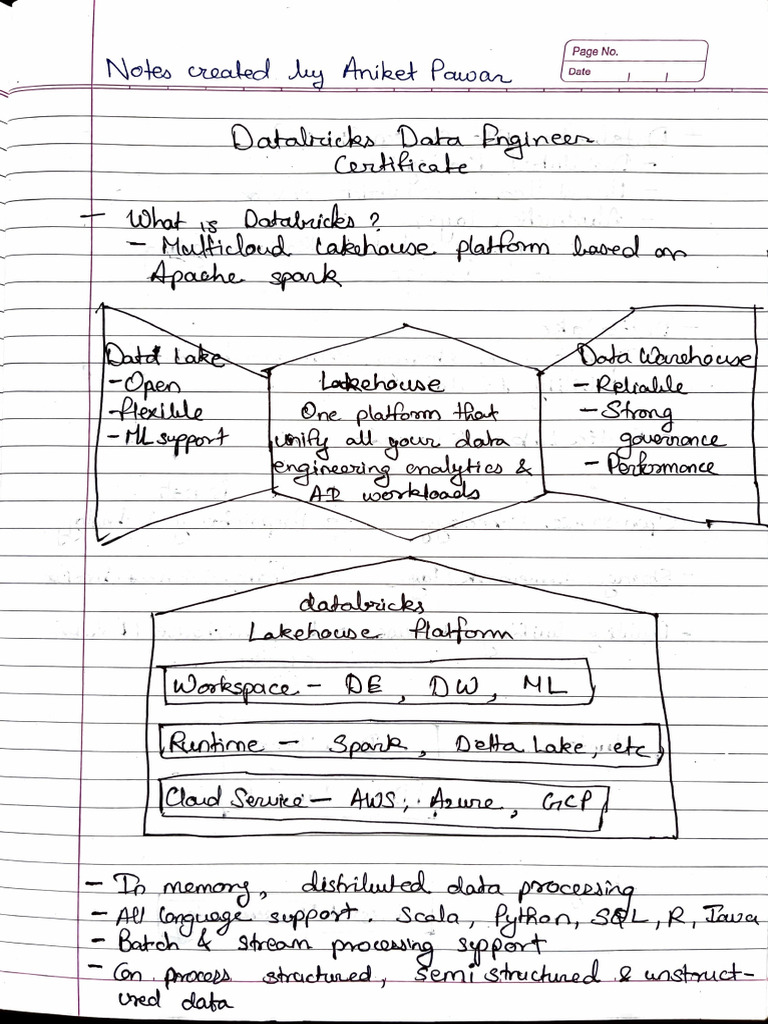 Notes created by Aniket Pawar
Page No.
Date
Databricks Data Engineer
Certificate
- What is Databricks?
- Multicloud Lakehouse platform based on
Apache spark
Data Lake
- Open
- flexible
- ML support
Lakehouse
One platform that
unify all your data
engineering analytics &
AI workloads
Data Warehouse
- Reliable
- Strong
governance
- Performance
databricks
Lakehouse Platform
Workspace - DE, DW, ML
Runtime - Spark, Delta Lake, etc
Cloud Service - AWS, Azure, GCP
- In memory, distributed data processing
- All language support. Scala, Python, SQL, R, Java
- Batch & stream processing support
- Can process structured, semi structured & unstruct-
ured data